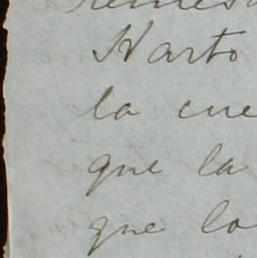 Harto
la cue
que la
que lo